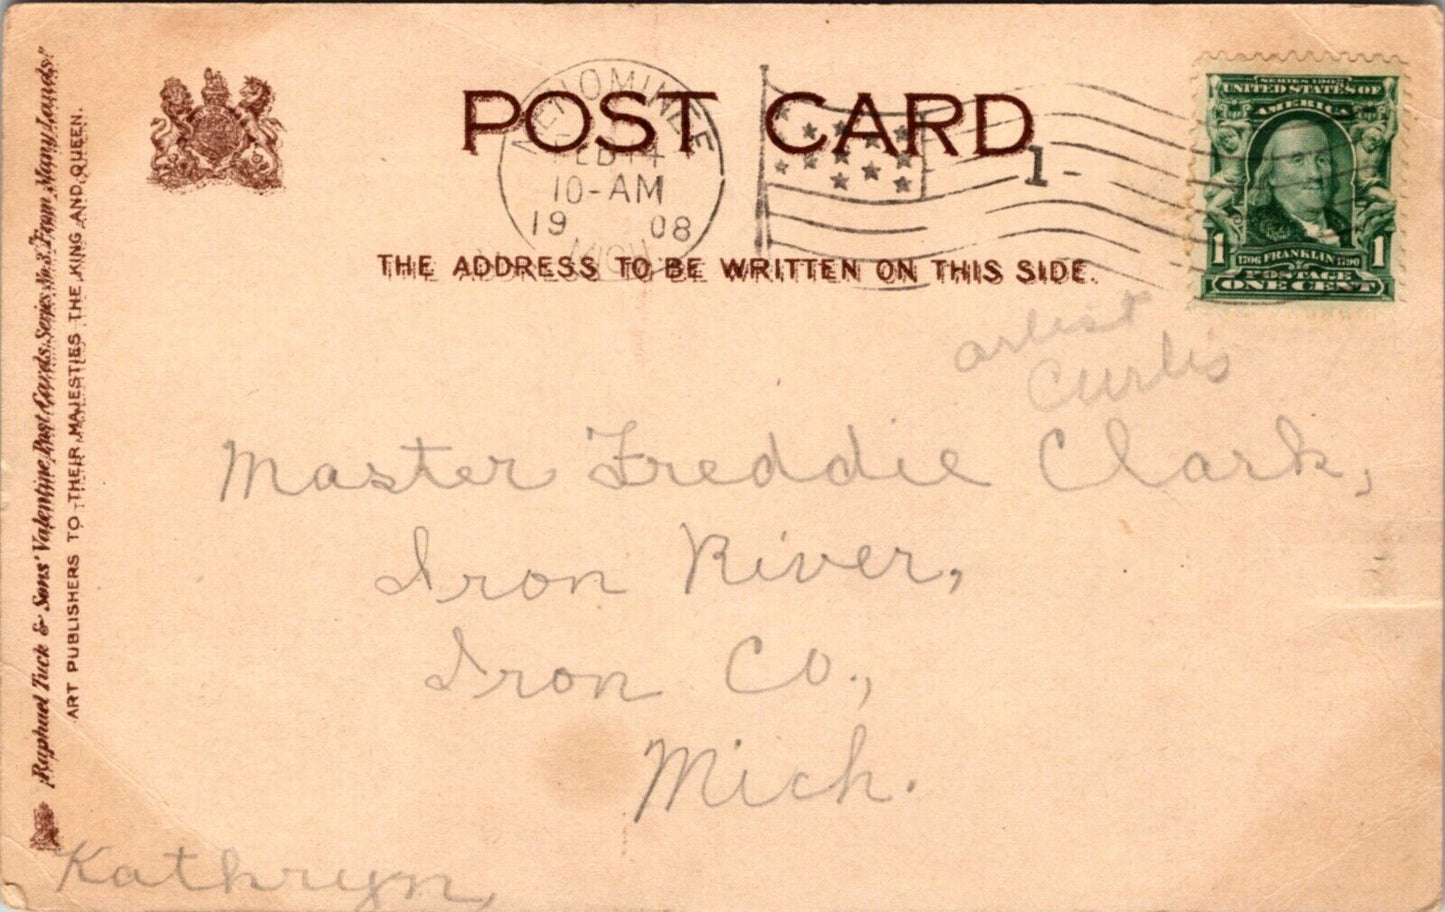 POST CARD
MENOMINEE
FEB 14
10-AM
19 08
MICH
1-
SERIES 1902
UNITED STATES OF
AMERICA
1 1
1706 FRANKLIN 1790
POSTAGE
ONE CENT
THE ADDRESS TO BE WRITTEN ON THIS SIDE.
artist
Curtis
Master Freddie Clark,
Iron River,
Iron Co.,
Mich.
Kathryn,
Raphael Tuck & Sons' Valentine Post Cards, Series No. 3. "From Many Lands."
ART PUBLISHERS TO THEIR MAJESTIES THE KING AND QUEEN.